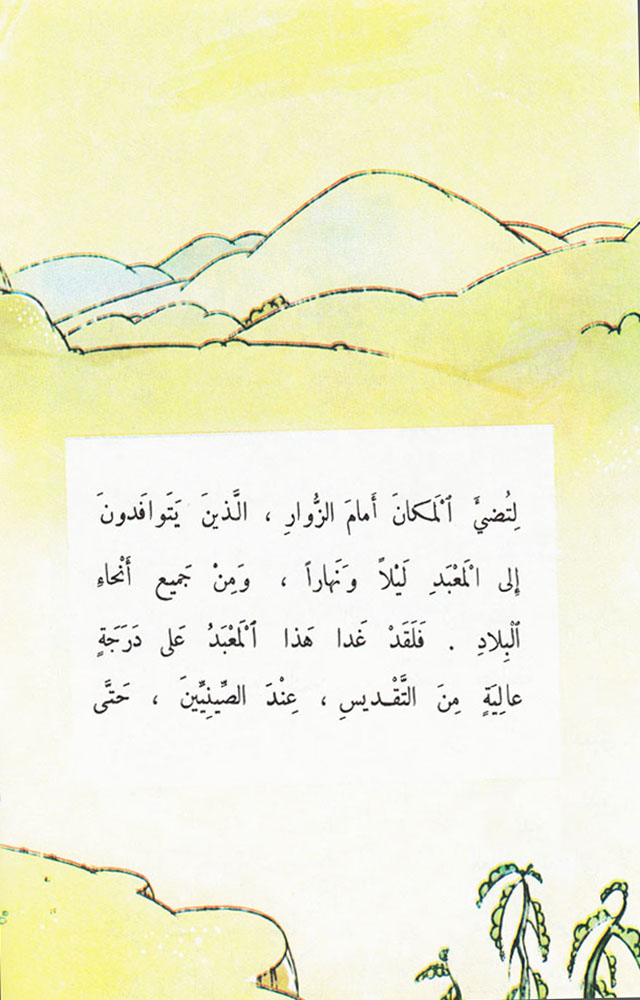 لِتُضيَّ ٱلْمَكانَ أَمامَ الزُّوارِ ، الَّذينَ يَتَوافَدونَ
إِلى الْمَعْبَدِ لَيْلاً ونَهاراً ، وَمِنْ جَميعِ أَنْحاءِ
ٱلْبِلادِ . فَلَقَدْ غَدا هَذا ٱلْمَعْبَدُ عَلى دَرَجَةٍ
عالِيَةٍ مِنَ التَّقْديسِ ، عِنْدَ الصِّينِيِّينَ ، حَتَّى